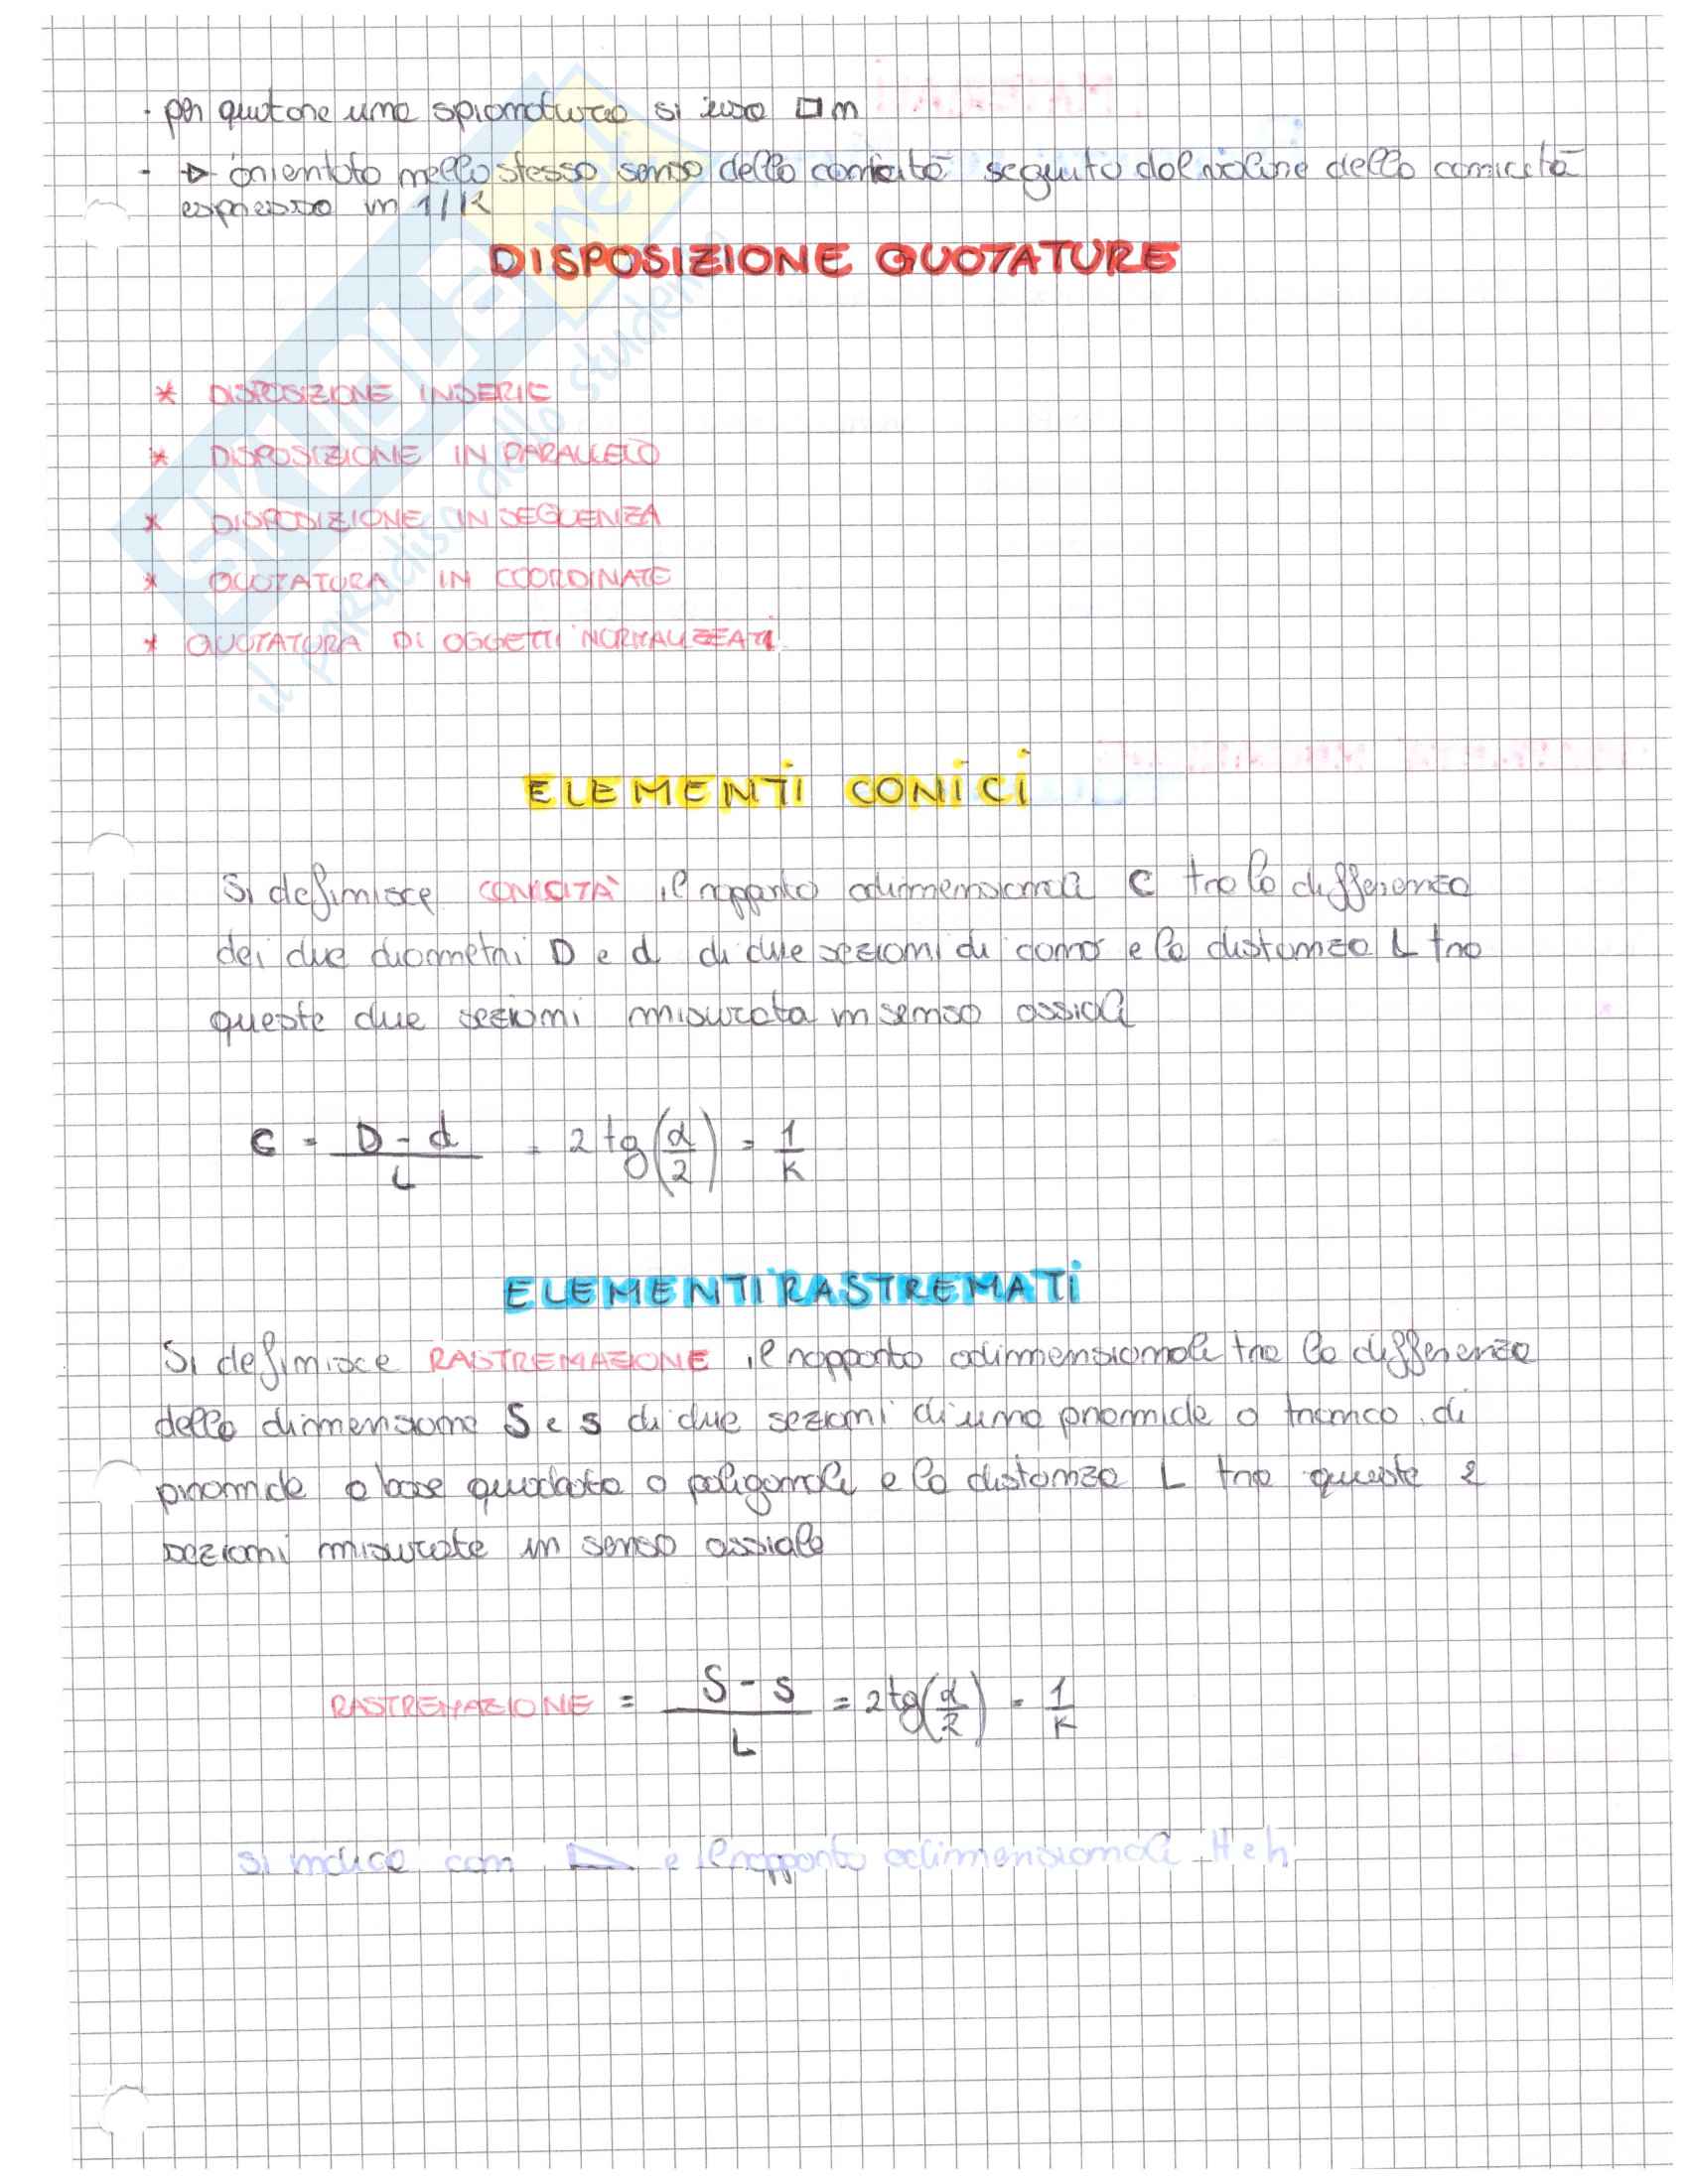 · per quotare una spianatura si usa □ n
- ▷ orientato nello stesso senso della conicità seguito dal valore della conicità
espresso in 1/K
DISPOSIZIONE QUOTATURE
* DISPOSIZIONE IN SERIE
* DISPOSIZIONE IN PARALLELO
* DISPOSIZIONE IN SEQUENZA
* QUOTATURA IN COORDINATE
* QUOTATURA DI OGGETTI NORMALIZZATI
SKUOLA.net
il paradiso dello studente
ELEMENTI CONICI
Si definisce CONICITÀ il rapporto adimensionale C tra la differenza
dei due diametri D e d di due sezioni di cono e la distanza L tra
queste due sezioni misurata in senso assiale
C = (D - d)/L = 2 tg(α/2) = 1/K
ELEMENTI RASTREMATI
Si definisce RASTREMAZIONE il rapporto adimensionale tra la differenza
della dimensione S e s di due sezioni di una piramide o tronco di
piramide a base quadrata o poligonale e la distanza L tra queste 2
sezioni misurate in senso assiale
RASTREMAZIONE = (S - s)/L = 2 tg(α/2) = 1/K
si indica con ◺ e il rapporto adimensionale H e h